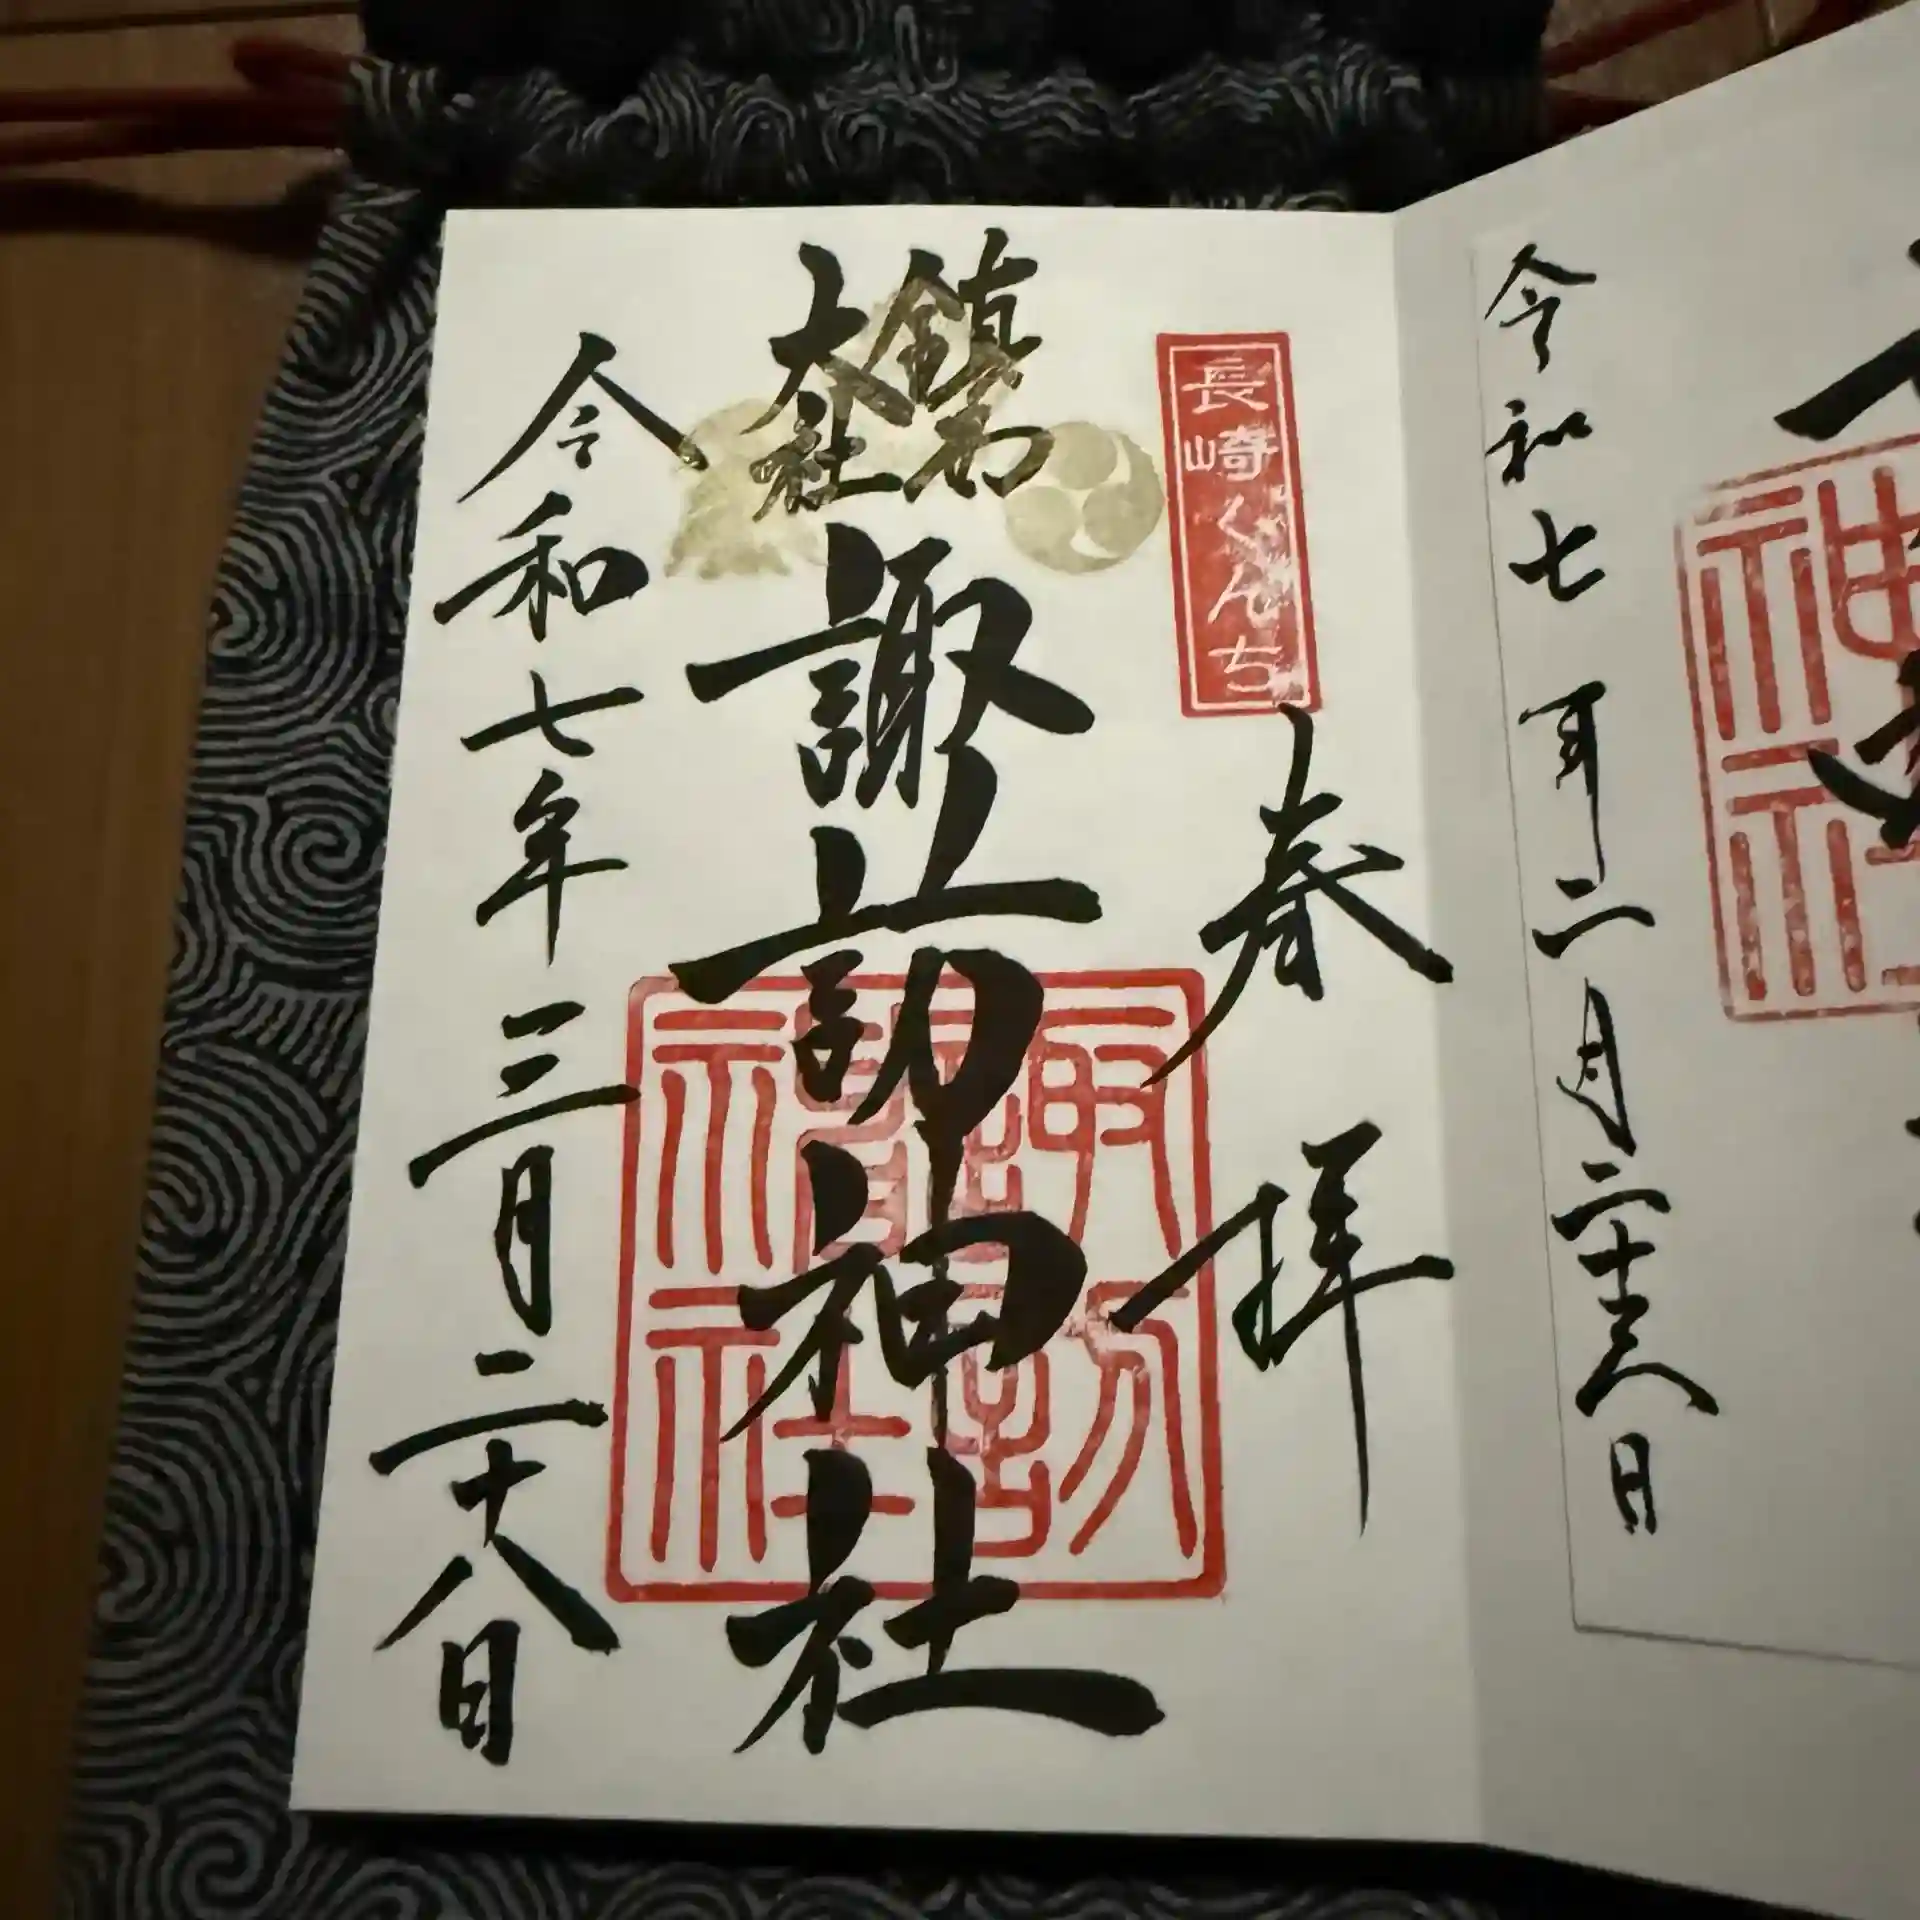 令和七年二月二十六日
長崎くんち
春拝
鎮西
大社
諏訪神社
諏訪
神社
令和七年三月二十八日